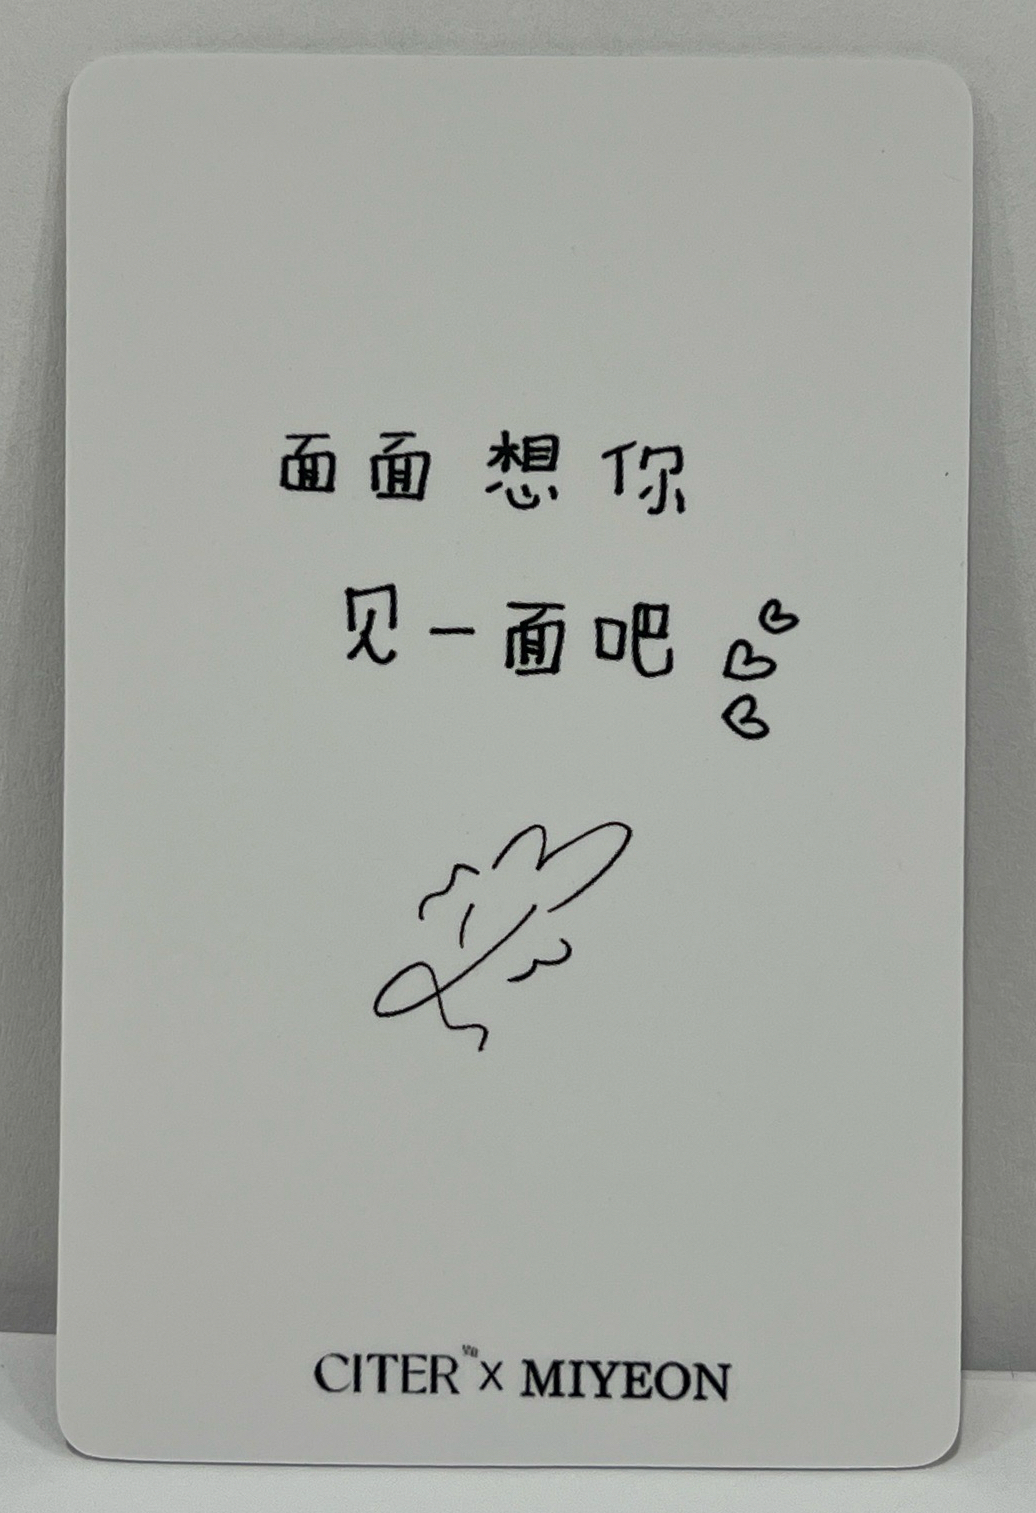 面面想你
见一面吧
CITER x MIYEON